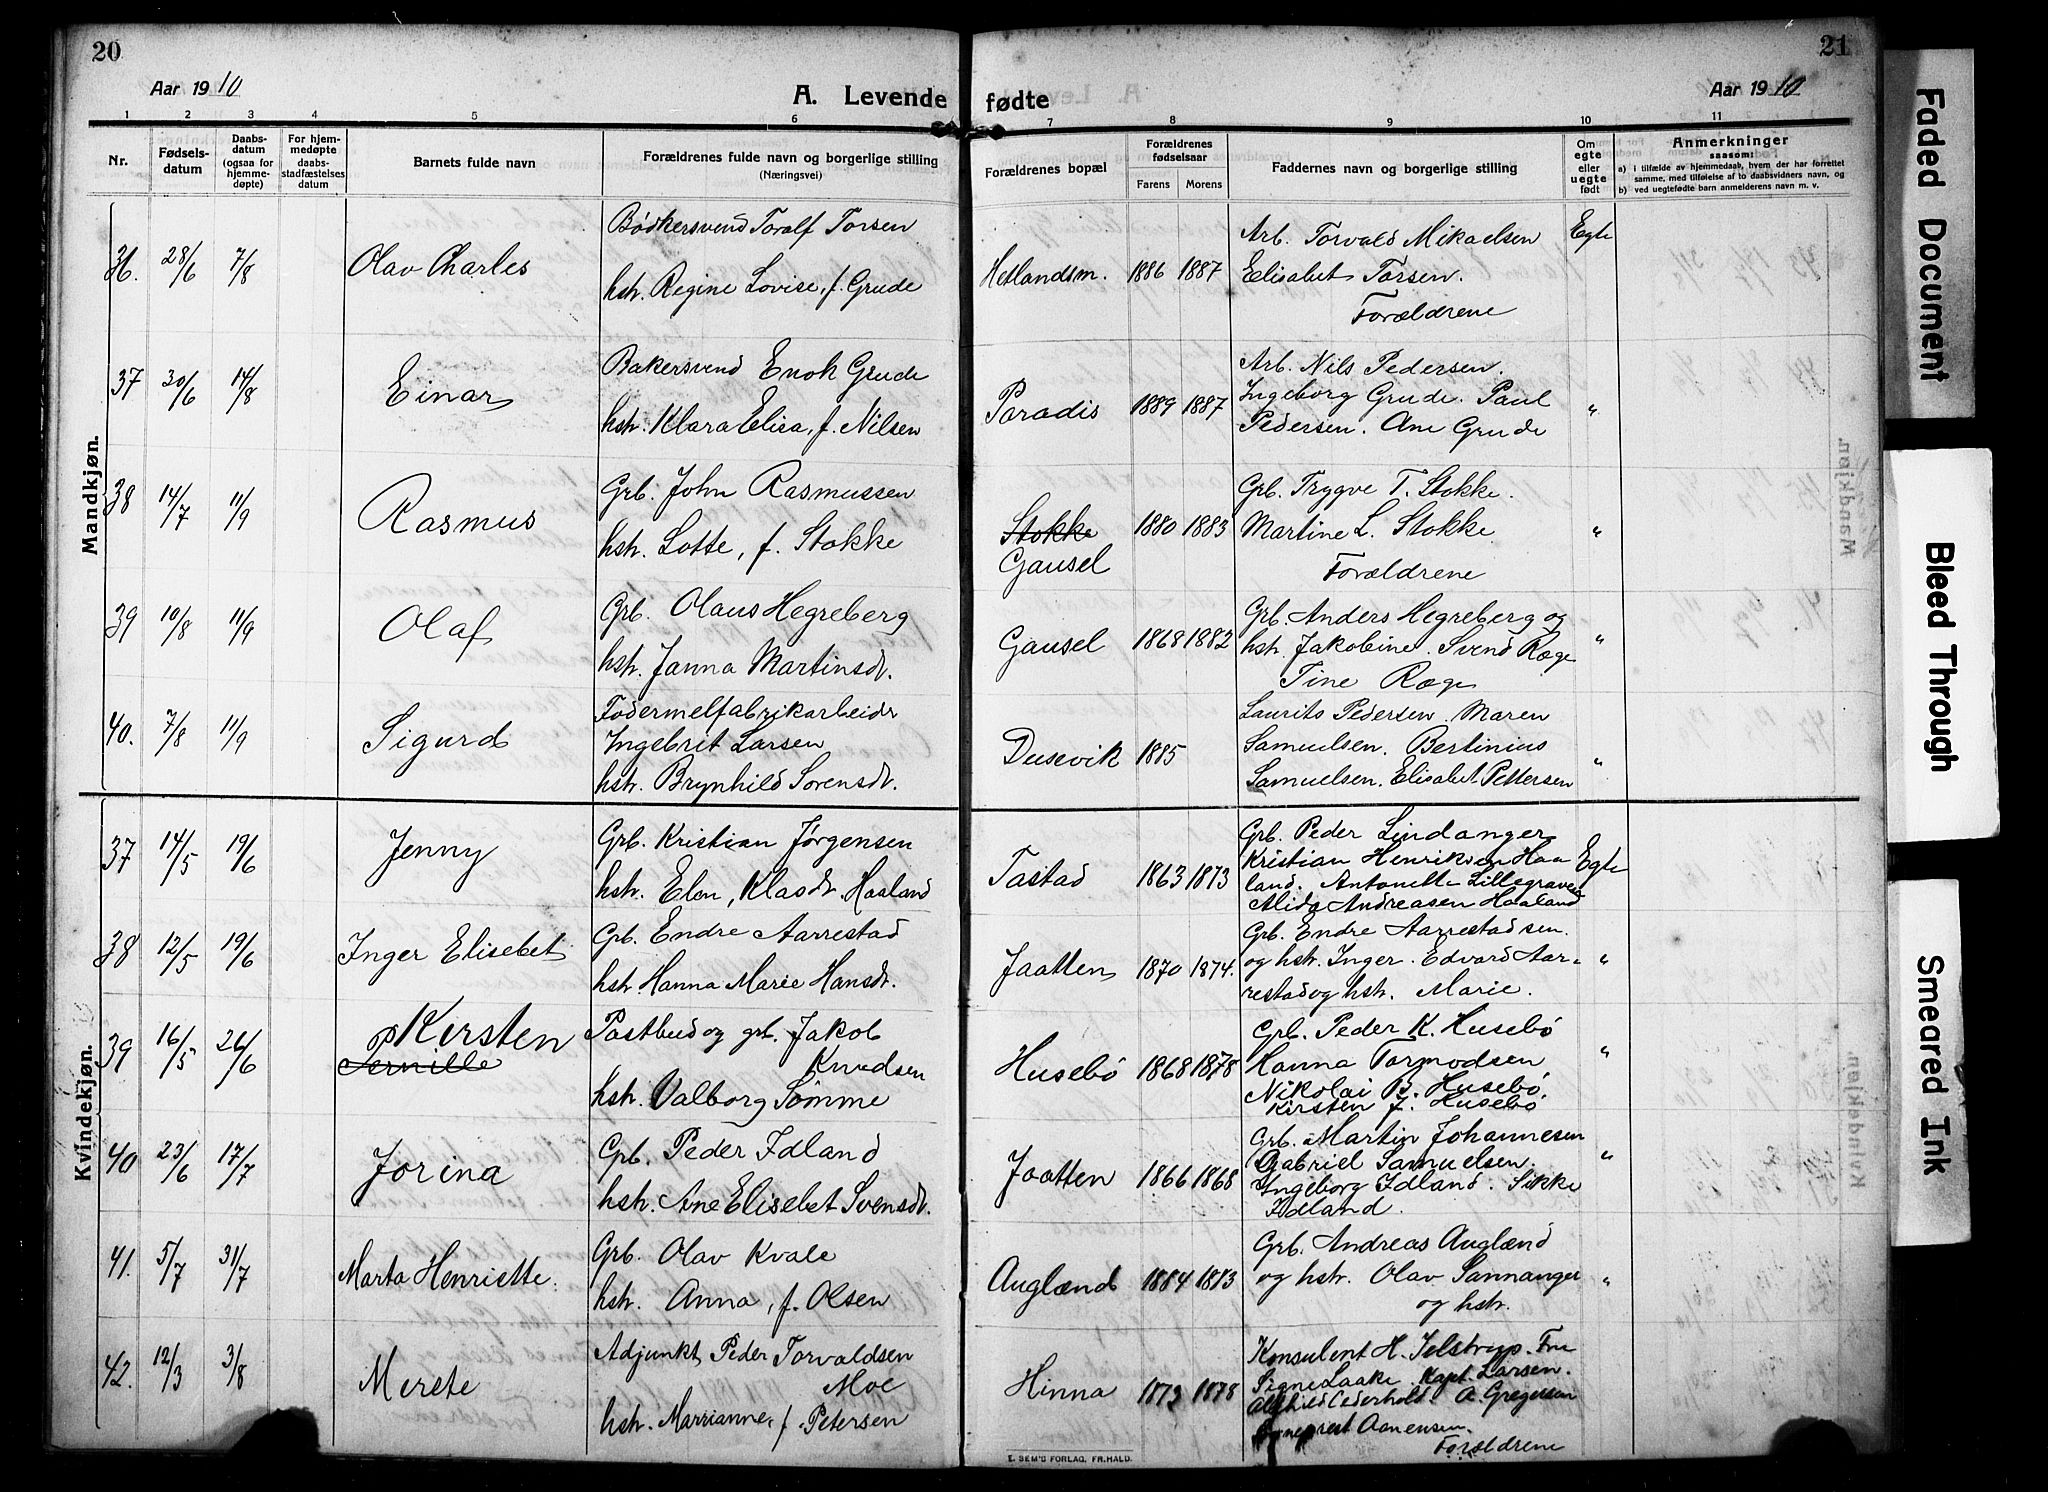 20
21
Aar 1910
A. Levende fødte
Aar 1910
1 2 3 4 5 6 7 8 9 10 11
Nr.
Fødselsdatum
Daabsdatum (ogsaa for hjemmedøpte)
For hjemmedøpte daabsstadfæstelses datum
Barnets fulde navn
Forældrenes fulde navn og borgerlige stilling
(Næringsvei)
Forældrenes bopæl
Forældrenes fødselsaar
Farens Morens
Faddernes navn og borgerlige stilling
Om egte eller uegte født
Anmerkninger
saasom:
a) i tilfælde av hjemmedaab, hvem der har forrettet samme, med tilføielse af to daabsvidners navn, og
b) ved uegtefødte barn anmelderens navn m. v.
Mandkjøn.
36. 28/6 7/8 Olav Charles
Bødkersvend Toralf Torsen
hstr. Regine Lovise, f. Grude
Hetlandsm. 1886 1887
Arb. Torvald Mikaelsen
Elisabet Torsen.
Forældrene
Egte
37 30/6 14/8 Einar
Bakersvend Enok Grude
hstr. Klara Elisa, f. Nilsen
Paradis 1889 1887
Arb. Nils Pedersen.
Ingeborg Grude. Paul
Pedersen. Ane Grude
"
38 14/7 11/9 Rasmus
Grb. John Rasmussen
hstr. Lotte, f. Stokke
Stokke
Gausel
1880 1883
Grb. Trygve T. Stokke.
Martine L. Stokke
Forældrene
"
39 10/8 11/9 Olaf
Grb. Olaus Hegreberg
hstr. Janna Martinsdt.
Gausel 1868 1882
Grb. Anders Hegreberg og
hstr. Jakobine. Svend Ræge
Tine Ræge
"
40. 7/8 11/9 Sigurd
Fodermelfabrikarbeidr
Ingebrit Larsen
hstr. Brynhild Sorensdt.
Dusevik 1885
Laurits Pedersen. Maren
Samuelsen. Bertinius
Samuelsen. Elisabet Pettersen
"
Kvindekjøn.
37 14/5 19/6 Jenny
Grb. Kristian Jørgensen
hstr. Elen, Klasdt. Haaland
Tastad 1863 1873
Grb. Peder Lindanger
Kristian Henriksen Haa
land. Antonette Lillegraven
Alida Andreasen Haaland
Egte
38 12/5 19/6 Inger Elisebet
Grb. Endre Aarrestad
hstr. Hanna Marie Hansdt.
Jaatten 1870 1874.
Grb. Endre Aarrestad sen.
og hstr. Inger. Edvard Aar-
restad og hstr. Marie.
"
39 16/5 26/6 Kirsten
Pernille
Postbud og grb. Jakob
Knudsen
hstr. Valborg Sömme
Husebö 1868 1878
Grb. Peder K. Husebö
Hanna Tormodsen
Nikolai B. Husebö.
Kirsten f. Husebö
"
40 23/6 17/7 Jorina
Grb. Peder Idland
hstr. Ane Elisebet Svensdt.
Jaatten 1866 1868
Grb. Martin Johannesen
Gabriel Samuelsen.
Ingeborg Idland. Sikke
Idland.
"
41. 5/7 31/7 Marta Henriette.
Grb. Olav Kvale
hstr. Anna, f. Olsen
Auglænd 1884 1883
Grb. Andreas Auglænd
og hstr. Olav Sannanger
og hstr.
"
42. 12/3 3/8 Merete
Adjunkt Peder Torvaldsen
Moe
hstr. Marrianne, f. Petersen
Hinna 1873 1878
Konsulent H. Jelstrup. Fru
Signe Laake. Kapt. Larsen.
Cederholt. A. Gregersen
Aanensen.
Forældrene
E. SEM'S FORLAG, FR.HALD.
Faded Document
Bleed Through
Smeared Ink